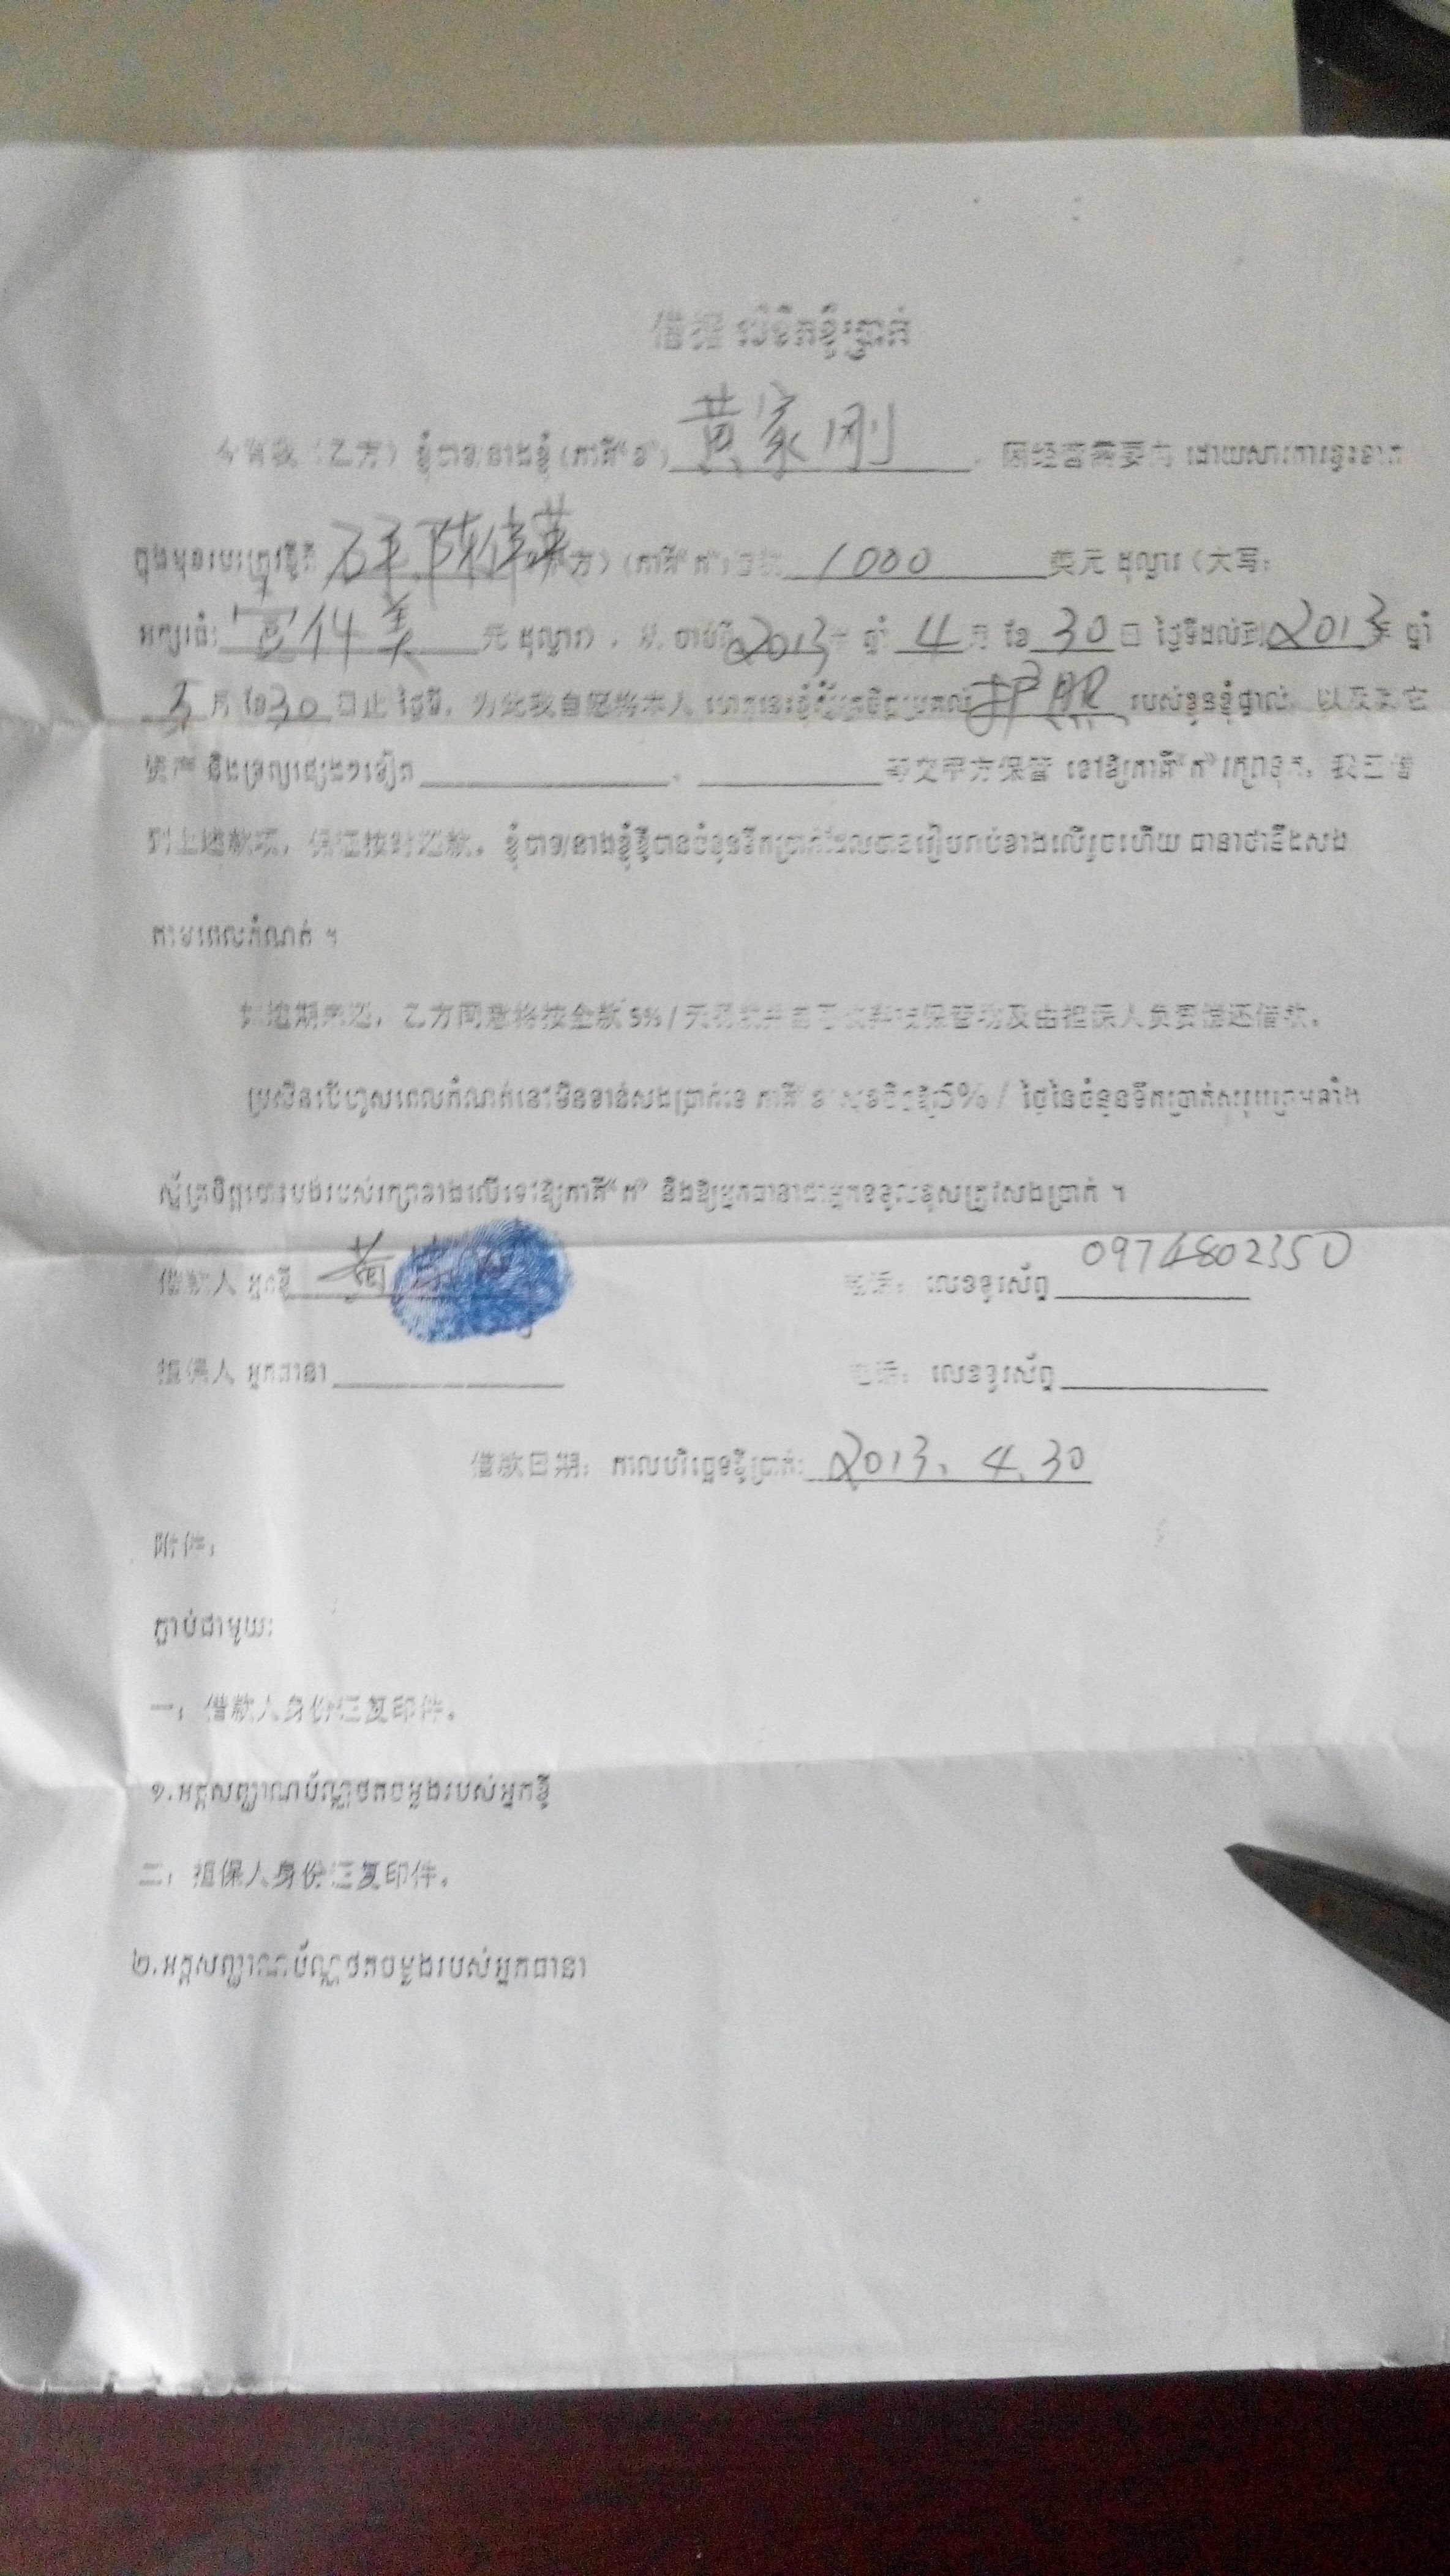 借据 លិខិតខ្ចីប្រាក់
今有我（乙方）ខ្ញុំបាទ/នាងខ្ញុំ (ភាគី“ខ”) 黄家刚 ，因经营需要向 ដោយសារការខ្វះខាត
1000 美元 ដុល្លារ（大写：
អក្សរធំ: 元 ដុល្លារ）, 从 ចាប់ពី 2013 年 ឆ្នាំ 4 月 ខែ 30 日 ថ្ងៃទីដល់ 到 2013 年 ឆ្នាំ
5 月 ខែ 30 日止 ថ្ងៃទី, 为此我自愿将本人 ហេតុនេះខ្ញុំស្ម័គ្រចិត្តប្រគល់ 护照 របស់ខ្លួនខ្ញុំផ្ទាល់, 以及其它
资产 និងទ្រព្យផ្សេងៗទៀត , 等交甲方保管 ទៅឱ្យភាគី“ក” រក្សាទុក, 我已借
到上述款项，保证按时还款。ខ្ញុំបាទ/នាងខ្ញុំខ្ចីបានចំនួនទឹកប្រាក់ដែលបានរៀបរាប់ខាងលើរួចហើយ ធានាថានឹងសង
តាមពេលកំណត់ ។
如逾期未还，乙方同意将按金款 5% / 天 保管物及由担保人负责偿还借款。
ប្រសិនបើហួសពេលកំណត់នៅមិនទាន់សងប្រាក់ទេ ភាគី 5% / ថ្ងៃនៃចំនួនទឹកប្រាក់សរុបព្រមទាំង
ស្ម័គ្រចិត្តបោះបង់របស់រក្សាខាងលើទៅឱ្យភាគី“ក” និងឱ្យអ្នកធានាជាអ្នកទទួលខុសត្រូវសងប្រាក់ ។
借款人 អ្នកខ្ចី 黄 电话：លេខទូរស័ព្ទ 0974802350
担保人 អ្នកធានា 电话：លេខទូរស័ព្ទ
借款日期：កាលបរិច្ឆេទខ្ចីប្រាក់: 2013. 4. 30
附件：
ភ្ជាប់ជាមួយ:
一：借款人身份证复印件。
១.អត្តសញ្ញាណប័ណ្ណថតចម្លងរបស់អ្នកខ្ចី
二：担保人身份证复印件。
២.អត្តសញ្ញាណប័ណ្ណថតចម្លងរបស់អ្នកធានា